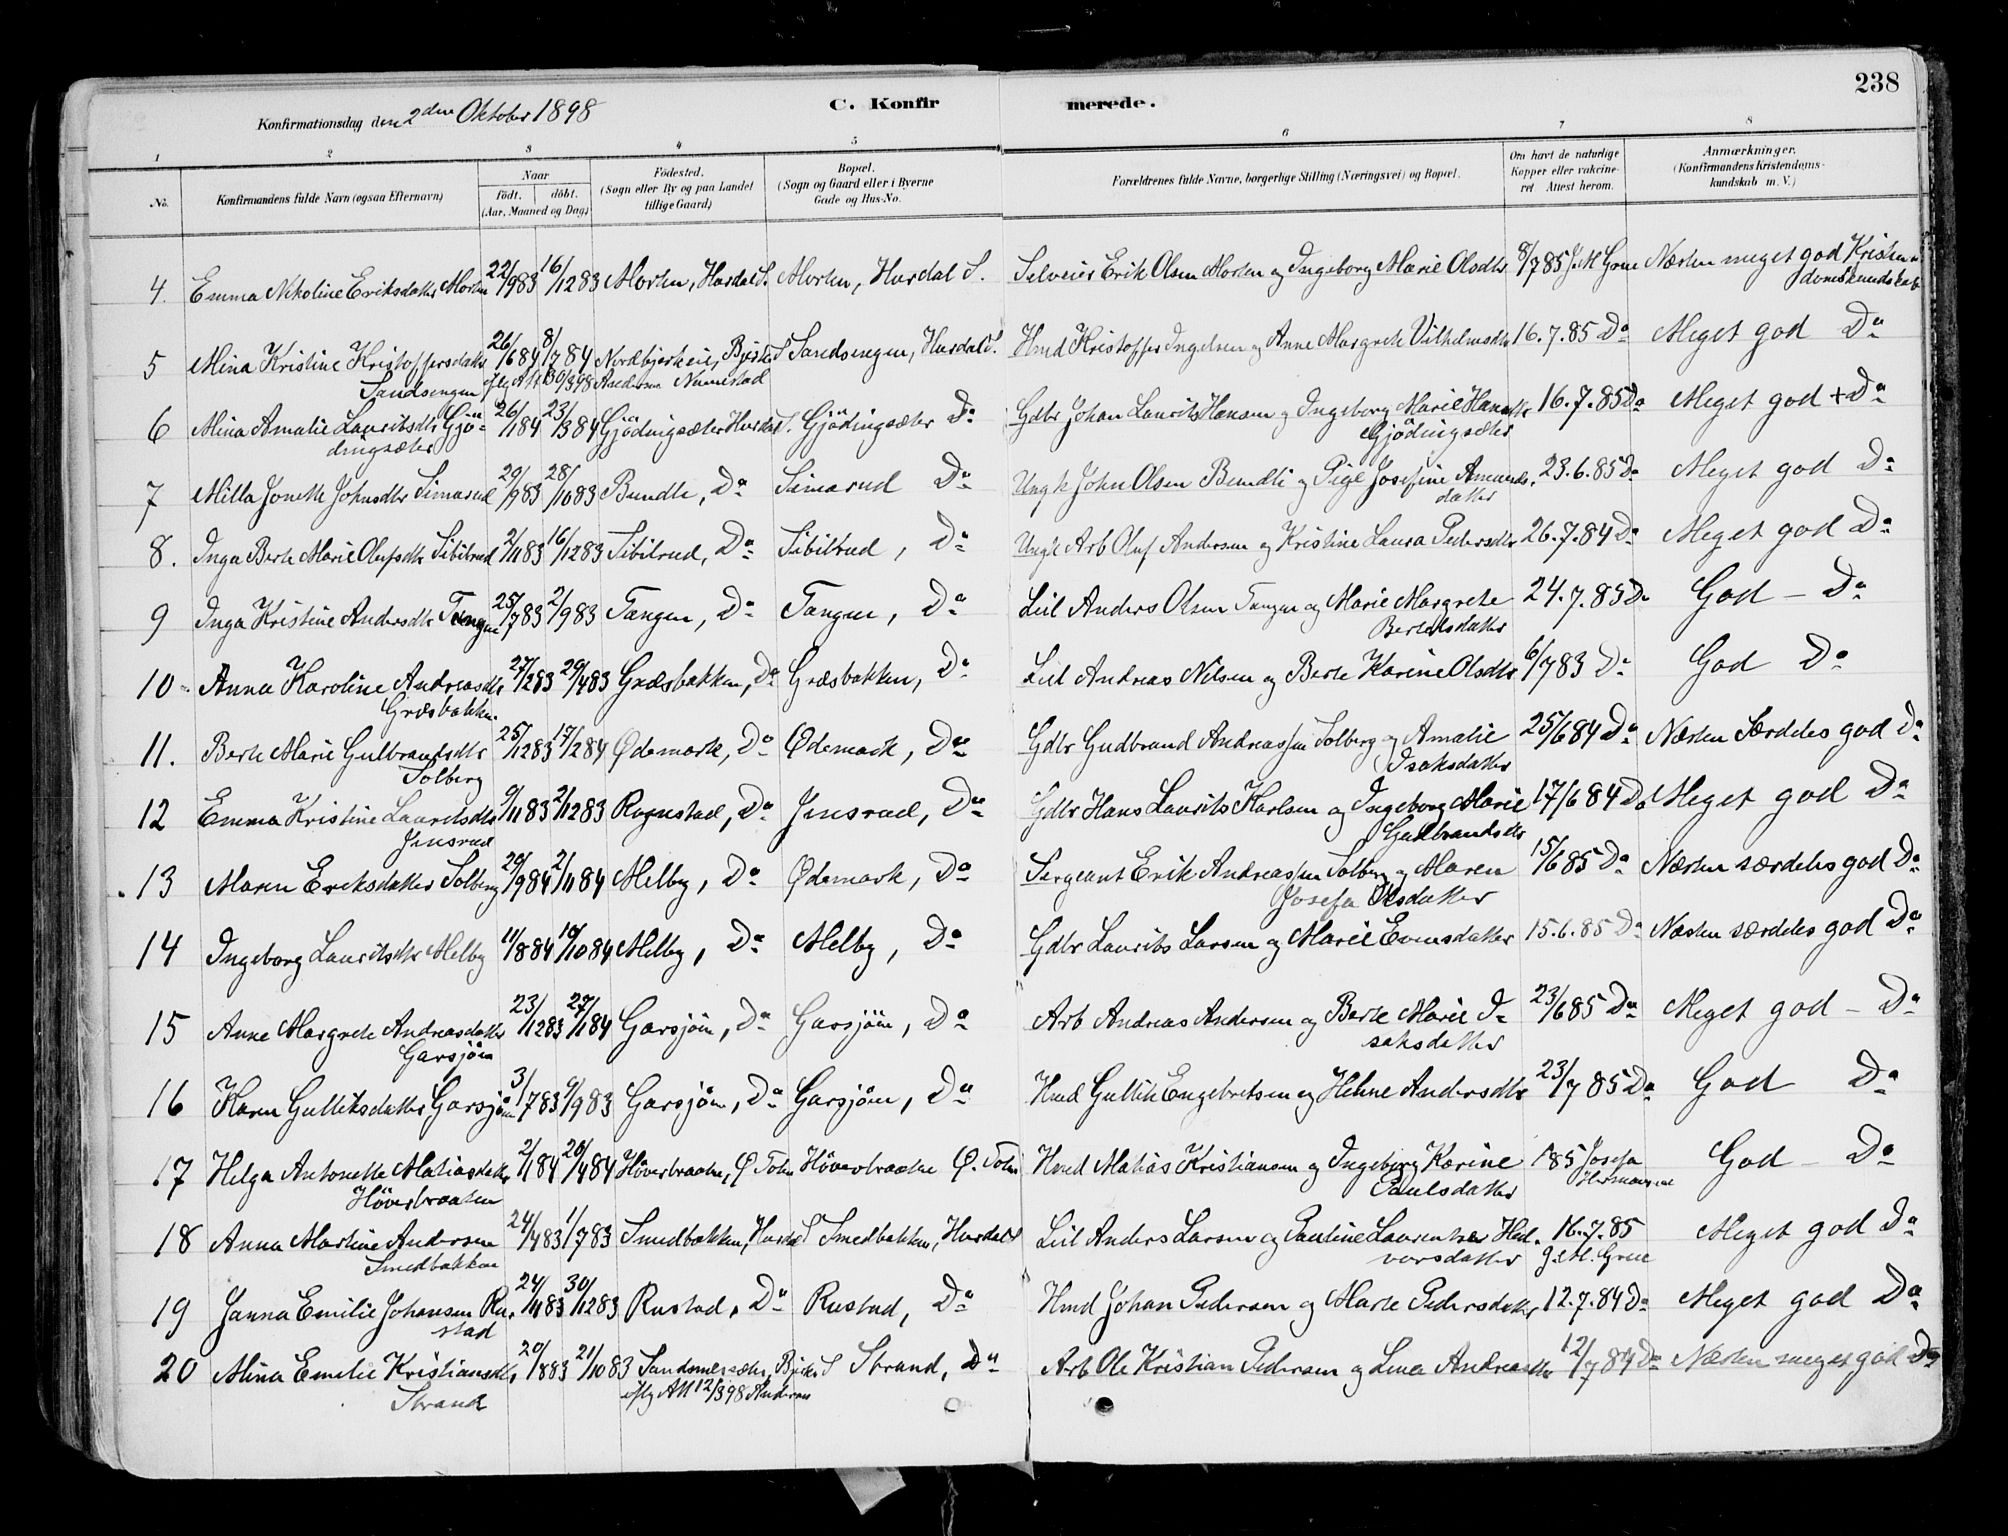 238
C. Konfirmerede.
Konfirmationsdag den 2den Oktober 1898
1 2 3 4 5 6 7 8
No. Konfirmandens fulde Navn (ogsaa Efternavn) Naar födt. döbt. (Aar, Maaned og Dag) Födested. (Sogn eller By og paa Landet tillige Gaard) Bopæl. (Sogn og Gaard eller i Byerne Gade og Hus-No. Forældrenes fulde Navne, borgerlige Stilling (Næringsvei) og Bopæl. Om havt de naturlige Kopper eller vakcineret Attest herom. Anmærkninger. (Konfirmandens Kristendomskundskab m. V.)
4. Emma Nikoline Eriksdatter Morten 22/9 83 16/12 83 Morten, Hurdal S. Morten, Hurdal S. Selveier Erik Olsen Morten og Ingeborg Marie Olsdtr 8/7 85 J. M Grue Næsten meget god Kristendomskundskab
5 Mina Kristine Kristoffersdatter 26/6 84 8/7 84 Nordbjerkeie, S Sandsengen, Hurdal S. Hmd Kristoffer Ingelsen og Anne Margrete Vilhelmsdtr 16.7.85 Do Meget god Do
Sandsengen iflg Att 30/3 98 Andersen Nannestad
6 Mina Amalie Lauritsdtr Gjö- 26/1 84 23/3 84 Gjödingsæter Hurdal S. Gjödingsæter Do Gdbr Johan Laurits Hansen og Ingeborg Marie Hansdtr 16.7.85 Do Meget god + Do
dingsæter Gjödingsæter
7 Milla Jonette Johnsdtr Simarud 29/9 83 28/10 83 Bundli, Do Simarud Do Ungk John Olsen Bundli og Pige Josefine Amunds- 23.6.85 Do Meget god Do
datter
8. Inga Berte Marie Olufsdtr Sibilrud 2/11 83 16/12 83 Sibilrud, Do Sibilrud, Do Ungk Arb Oluf Andersen og Kristine Laura Pedersdtr 26.7.84 Do Meget god Do
9 Inga Kristine Andersdtr Tangen 25/7 83 2/9 83 Tangen, Do Tangen, Do Leil Anders Olsen Tangen og Marie Margrete 24.7.85 Do God – Do
Bertelsdatter
10 Anna Karoline Andreasdtr 27/2 83 29/4 83 Græsbakken, Do Græsbakken, Do Leil Andreas Nilsen og Berte Karine Olsdtr 6/7 83 Do God Do
Græsbakken
11. Berte Marie Gulbrandsdtr 25/12 83 17/2 84 Ødemark, Do Ødemark, Do Gdbr Gudbrand Andreassen Solberg og Amalie 25/6 84 Do Næsten Særdeles god Do
Solberg Isaksdatter
12 Emma Kristine Lauritsdtr 9/11 83 2/12 83 Rognstad, Do Jinsrud, Do Gdbr Hans Laurits Karlsen og Ingeborg Marie 17/6 84 Do Meget god Do
Jinsrud Gudbrandsdtr
13 Maren Eriksdatter Solberg 29/9 84 2/11 84 Melby, Do Ødemark, Do Sergeant Erik Andreassen Solberg og Maren 15/6 85 Do Næsten særdeles god Do
Josefa Olsdatter
14 Ingeborg Lauritsdtr Melby 11/8 84 19/10 84 Melby, Do Melby, Do Gdbr Laurits Larsen og Marie Evensdatter 15.6.85 Do Næsten særdeles god Do
15 Anne Margrete Andreasdatter 23/12 83 27/1 84 Garsjöen, Do Garsjöen, Do Arb Andreas Andersen og Berte Marie I- 23/6 85 Do Meget god – Do
Garsjöen saksdatter
16 Karen Gulliksdatter Garsjöen 3/7 83 9/9 83 Garsjöen, Do Garsjöen, Do Hmd Gullik Engebretsen og Helene Andersdtr 23/7 85 Do God Do
17 Helga Antonette Matiasdatter 2/1 84 20/4 84 Höverbraaten, Ø Toten Höverbraaten Ø. Toten Hmd Matias Kristiansen og Ingeborg Karine 1885 Josefa Hermansen God – Do
Höverbraaten Paulsdatter
18 Anna Martine Andersen 24/4 83 1/7 83 Smedbakken, Hurdal S Smedbakken, Hurdal S Leil Anders Larsen og Pauline Laurentse Hal- 16.7.85 Meget god Do
Smedbakken vorsdatter J. M. Grue
19 Janna Emilie Johansen Ru- 24/11 83 30/12 83 Rustad, Do Rustad, Do Hmd Johan Pedersen og Marte Pedersdatter 12.7.84 Do Meget god Do
stad
20 Mina Emilie Kristiansdtr 20/8 83 21/10 83 S Strand, Do Arb Ole Kristian Pedersen og Lina Andreasdtr 12/7 84 Do Næsten meget god Do
Strand iflg Att 12/3 98 Andersen